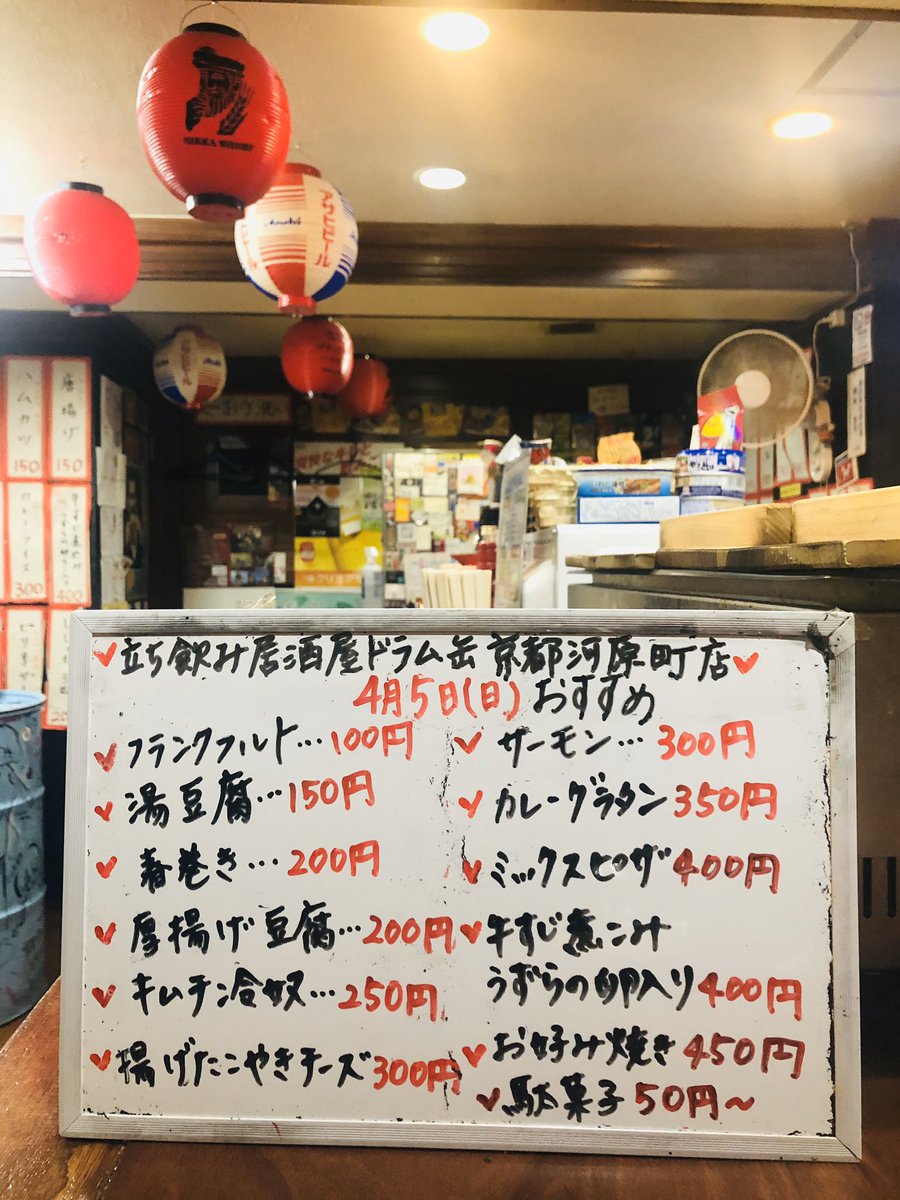 NIKKA WHISKY
アサヒビール
Asahi
唐揚げ
150
ハムカツ
150
カレーライス
300
400
立ち飲み居酒屋ドラム缶 京都河原町店
4月5日(日) おすすめ
フランクフルト…100円
湯豆腐…150円
春巻き…200円
厚揚げ豆腐…200円
キムチ冷奴…250円
揚げたこやきチーズ300円
サーモン…300円
カレーグラタン350円
ミックスピザ400円
牛すじ煮こみ
うずらの卵入り400円
お好み焼き450円
駄菓子50円〜